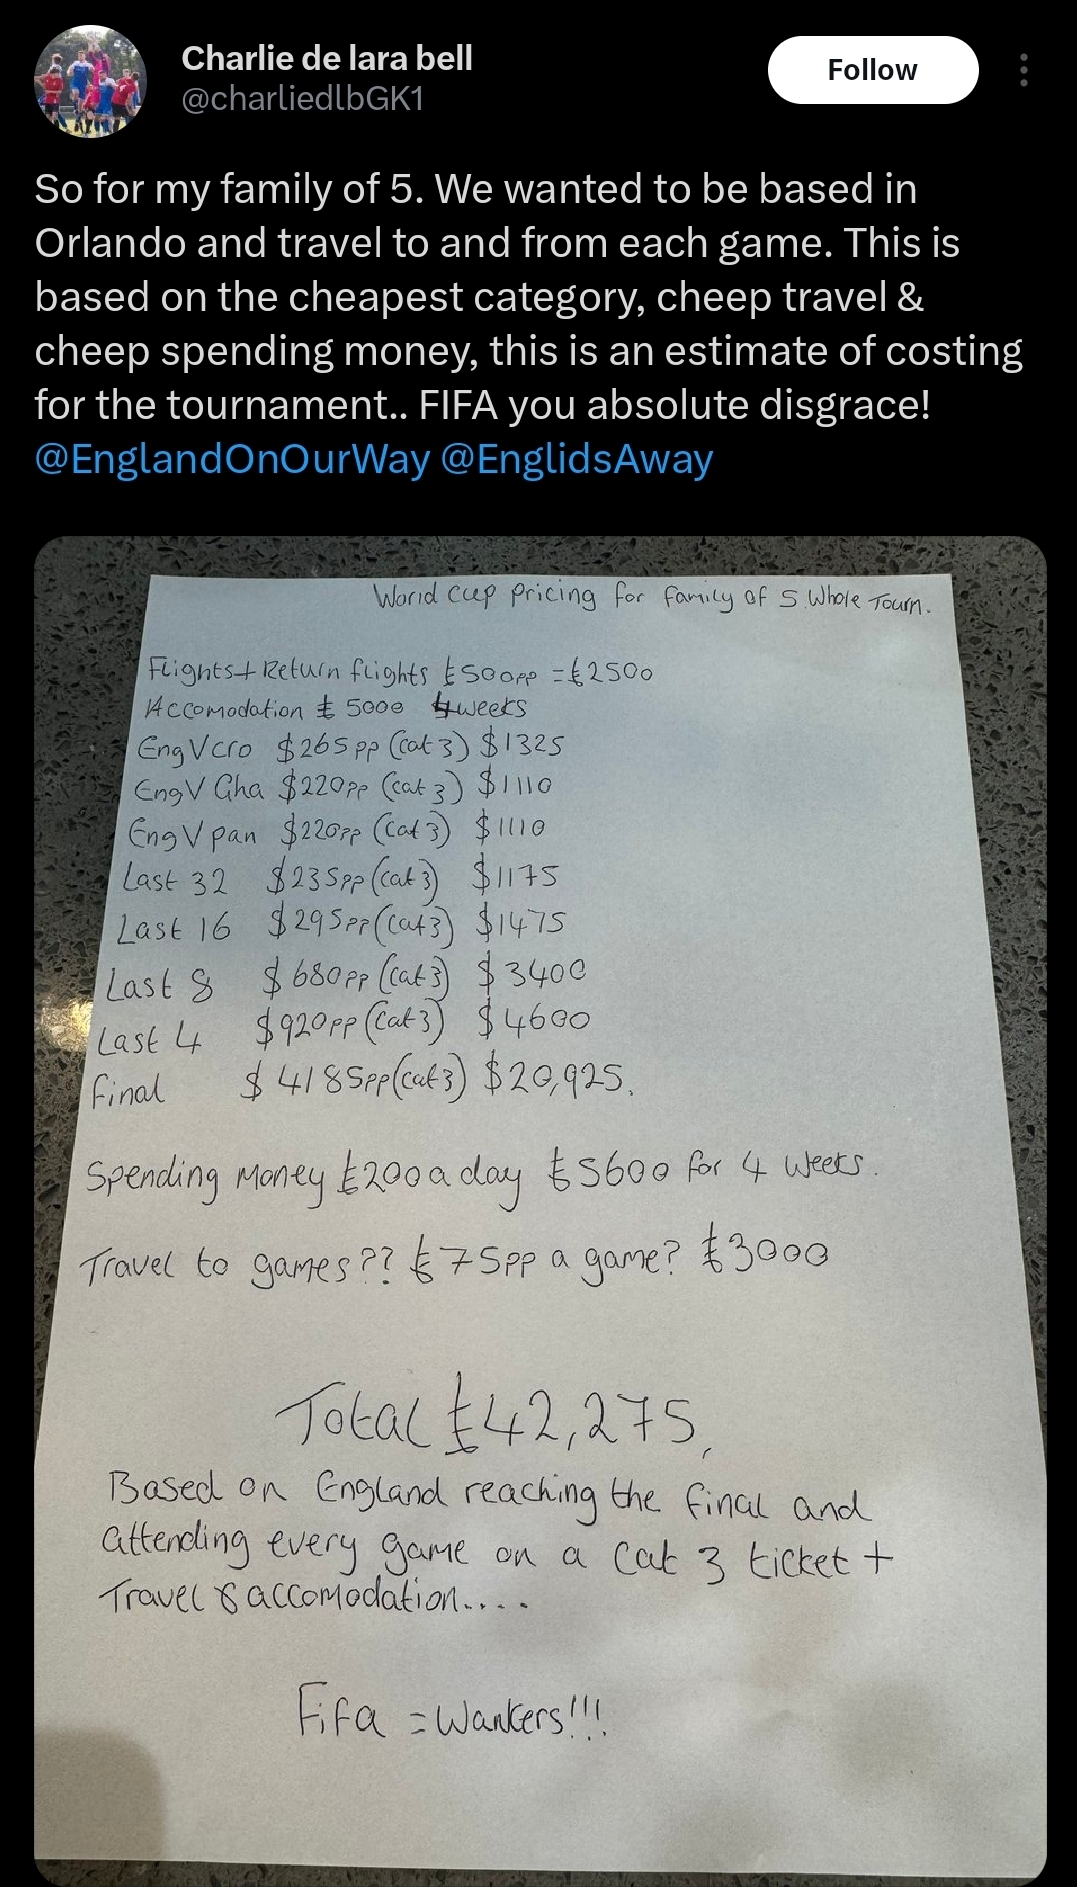 Charlie de lara bell
Follow
@charliedlbGK1
So for my family of 5. We wanted to be based in
Orlando and travel to and from each game. This is
based on the cheapest category, cheep travel &
cheep spending money, this is an estimate of costing
for the tournament.. FIFA you absolute disgrace!
@EnglandOnOurWay @EnglidsAway
World Cup Pricing for family of 5 Whole Tourn.
Flights + Return flights £500pp = £2500
Accomodation £ 5000 4weeks
Eng V cro $265pp (cat 3) $1325
Eng V Gha $220pp (cat 3) $1110
Eng V pan $220pp (cat 3) $1110
Last 32 $235pp (cat 3) $1175
Last 16 $295pp (cat 3) $1475
Last 8 $680pp (cat 3) $3400
Last 4 $920pp (cat 3) $4600
final $4185pp (cat 3) $20,925.
Spending Money £200 a day £5600 for 4 weeks.
Travel to games?? £75pp a game? £3000
Total £42,275,
Based on England reaching the final and
attending every game on a Cat 3 ticket +
Travel & accomodation....
Fifa = Wankers!!!